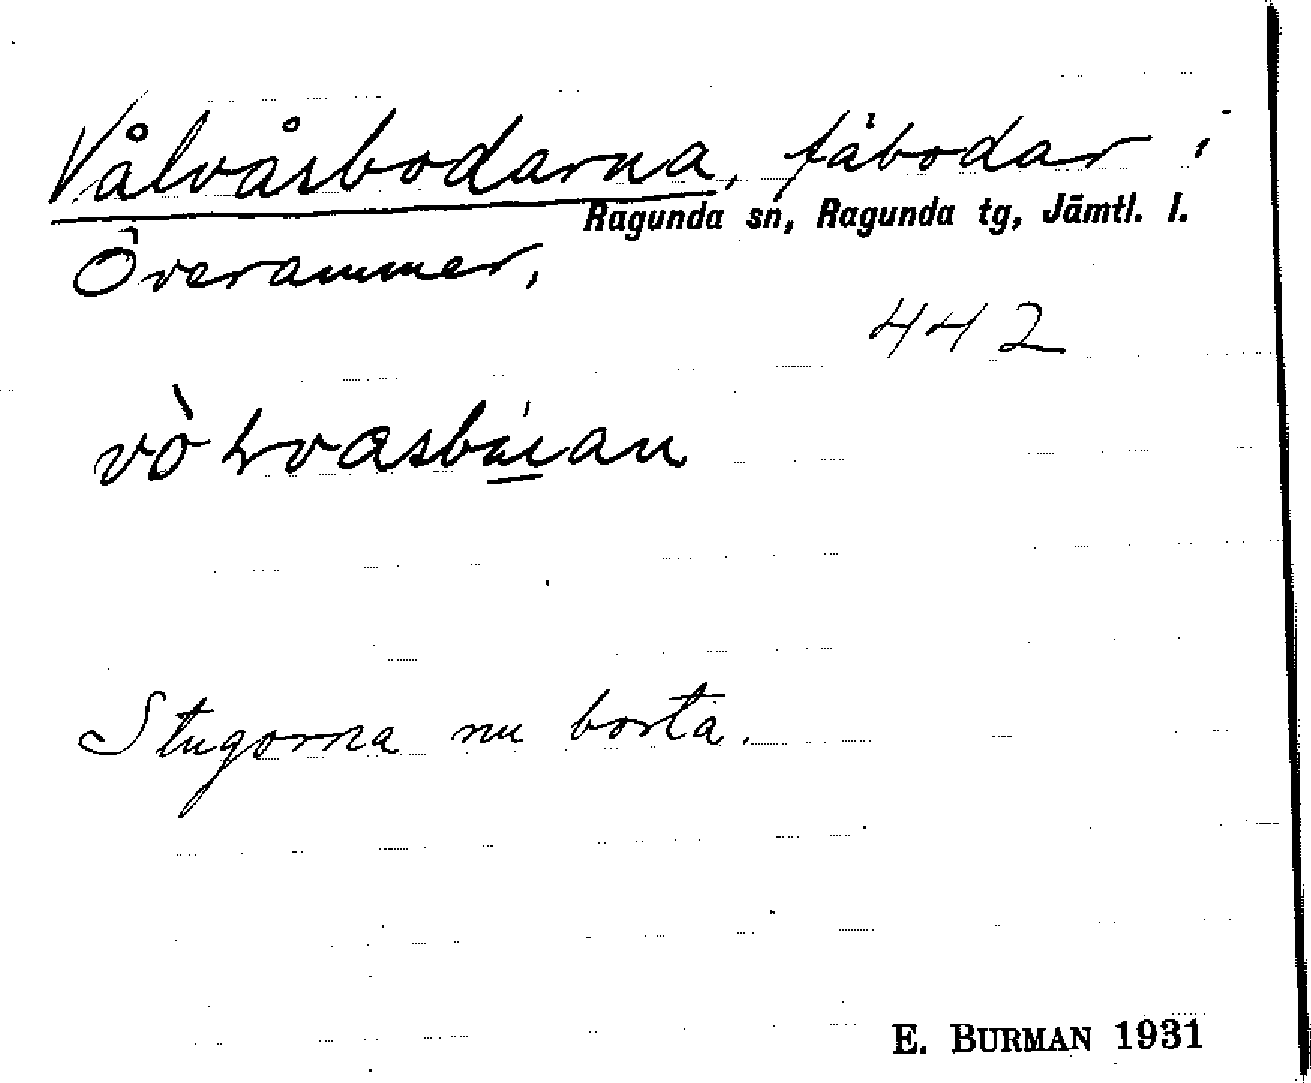 Vålvåsbodarna, fäbodar i
Ragunda sn, Ragunda tg, Jämtl. l.
Överammer,
442
Stugorna nu borta.
E. BURMAN 1931